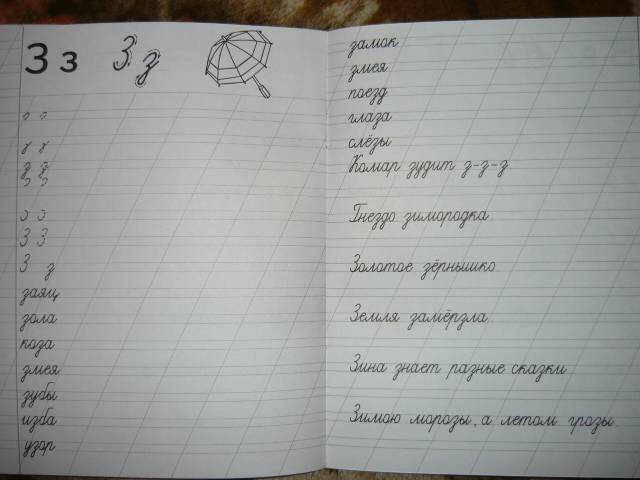 З з З з
З З
З з
заяц
зола
коза
змея
зубы
изба
узор
замок
змея
поезд
глаза
слёзы
Комар зудит з-з-з.
Гнездо зимородка.
Золотое зёрнышко.
Земля замёрзла.
Зина знает разные сказки.
Зимою морозы, а летом грозы.